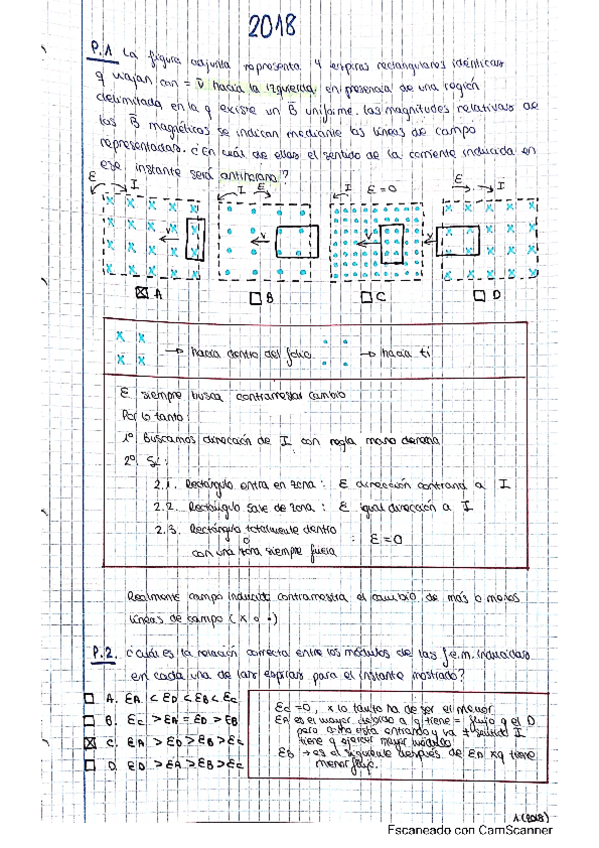 2018
P.1 La figura adjunta representa 4 espiras rectangulares idénticas
q viajan con = v hacia la izquierda, en presencia de una región
delimitada en la q existe un B uniforme. Las magnitudes relativas de
los B magnéticos se indican mediante las líneas de campo
representadas. ¿En cuál de ellas el sentido de la corriente inducida en
ese instante será antihorario?
ε I I ε I ε=0 ε I
v v v v
A B C D
x x → hacia dentro del folio → hacia ti
x x
ε siempre busca contrarrestar cambio
Por lo tanto:
1º Buscamos dirección de I con regla mano derecha
2º Si:
2.1. Rectángulo entra en zona: ε dirección contraria a I
2.2. Rectángulo sale de zona: ε igual dirección a I
2.3. Rectángulo totalmente dentro
o : ε=0
con una zona siempre fuera
Realmente campo inducido contrarresta el cambio de más o menos
líneas de campo (x o •)
P.2. ¿Cuál es la relación correcta entre los módulos de las f.e.m. inducidas
en cada una de las espiras para el instante mostrado?
A. εA < εD < εB < εC
B. εC > εA = εD > εB
C. εA > εD > εB > εC
D. εD > εA > εB > εC
εC = 0, x lo tanto ha de ser el menor
εA es el mayor debido a q tiene = flujo q el D
pero esta entrando y va sentido I
tiene q ejercer mayor módulo
εB → es el siguiente después de εD xq tiene
menor flujo.
1 (2018)
Escaneado con CamScanner